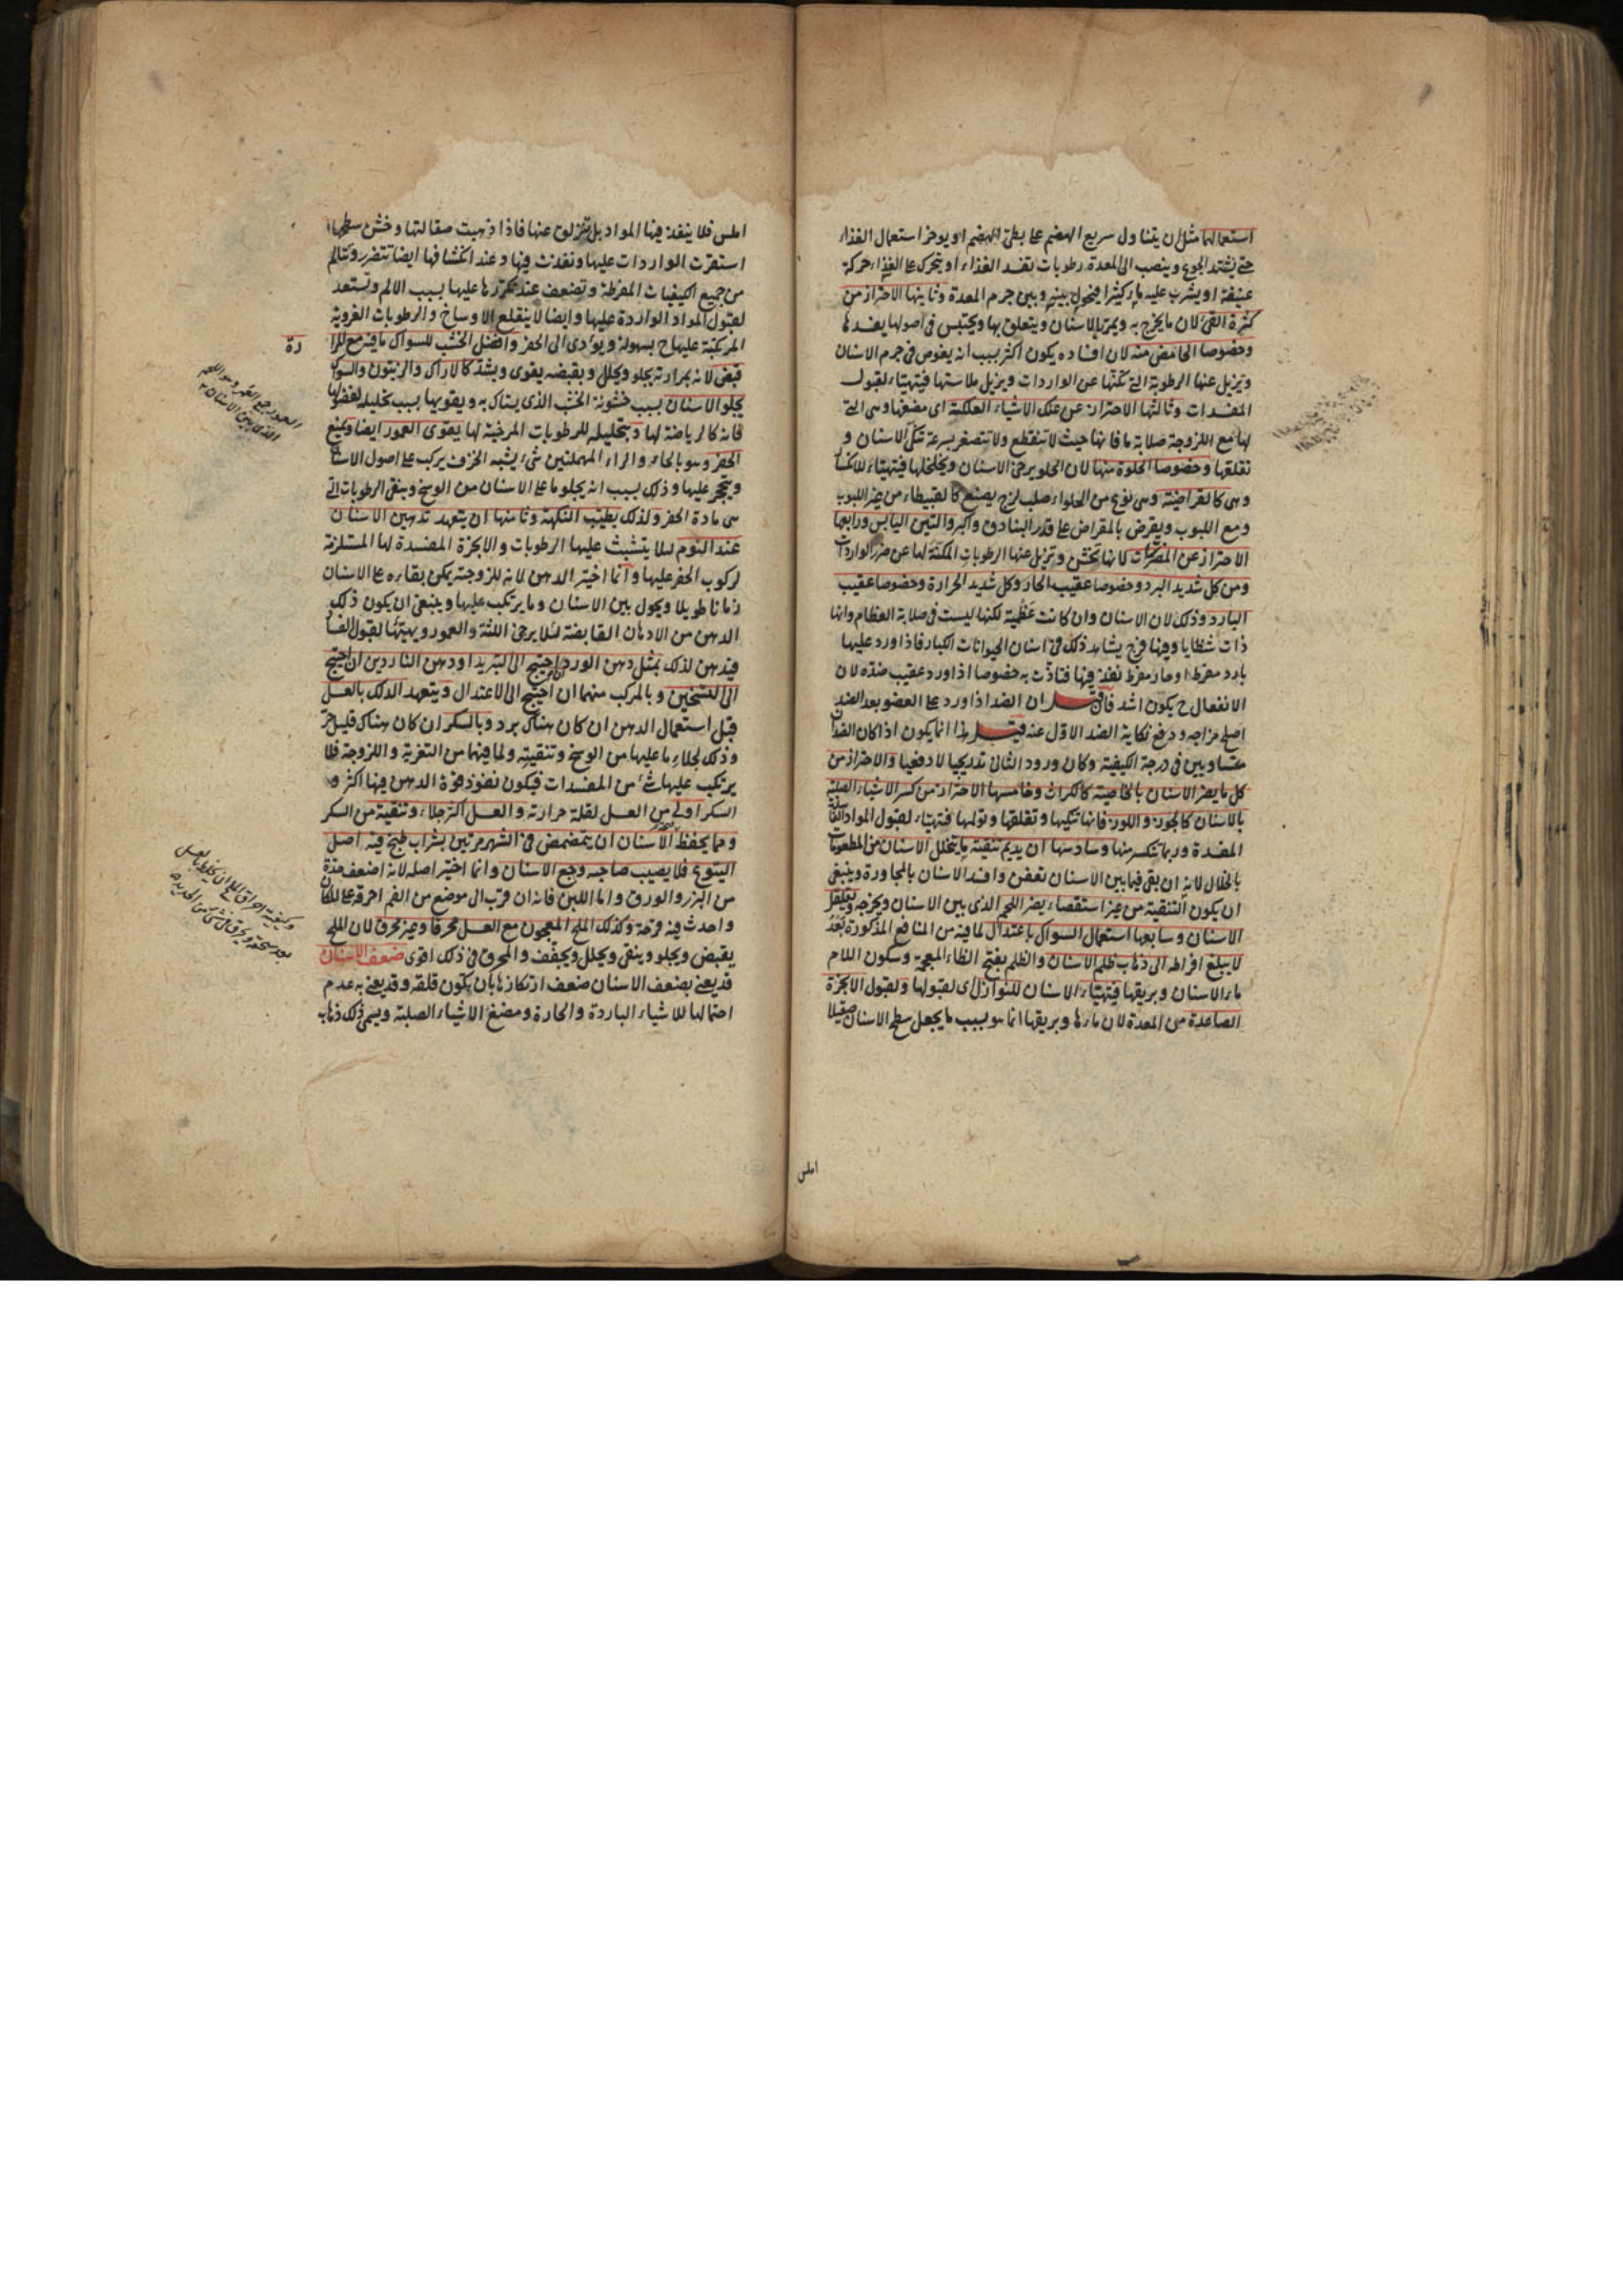 استعمالها مثل ان يتناول سريع الهضم على بطئ الهضم او يوخر استعمال الغذاء
حتى يشتد الجوع وينصب الى المعدة رطوبات تفسد الغذاء او يتحرك على الغذاء حركة
عنيفة او يشرب عليه ماء كثيرا فيحول بينه وبين جرم المعدة وثانيها الاحتراز من
كثرة القئ لان ما يخرج به ويمر بالاسنان ويتعلق بها ويحتبس في اصولها يفسدها
وخصوصا الحامض منه لان افساده يكون اكثر بسبب انه يغوص في جرم الاسنان
ويزيل عنها الرطوبة التي تكنها عن الواردات ويزيل ملاستها فيتهيئاء لقبول
المفسدات وثالثها الاحتراز عن علك الاشياء العلكة اى مضغها وهى التى
لها مع اللزوجة صلابة ما فانها حيث لا تنقطع ولا تتصغر بسرعة تنكئ الاسنان و
تقلقها وخصوصا الحلوة منها لان الحلو يرخى الاسنان ويخلخلها فيتهيئاء للانكسار
وهى كالقراضية وهى نوع من الحلواء صلب لزج يصنع كالقبيطاء من غير اللبوب
ومع اللبوب ويقرض بالمقراض على قدر البنادق واكبر والتين اليابس ورابعها
الاحتراز عن المضرسات لانها تخشن وتزيل عنها الرطوبات المكنة لها عن ضرر الواردات
ومن كل شديد البرد وخصوصا عقيب الحار وكل شديد الحرارة وخصوصا عقيب
البارد وذلك لان الاسنان وان كانت عظمية لكنها ليست في صلابة العظام وانها
ذات شظايا وفيها فرج يشاهد ذلك في اسنان الحيوانات الكبار فاذا ورد عليها
بارد مفرط او حار مفرط نفذ فيها فتاذت به خصوصا اذا ورد عقيب ضده لان
الانفعال ح يكون اشد فان قيل ان الضد اذا ورد على العضو بعد الضد
اصلح مزاجه ودفع نكاية الضد الاول عنه قيل هذا انما يكون اذا كان الضدان
متساويين في درجة الكيفية وكان ورود الثانى تدريجيا لا دفعيا والاحتراز من
كل ما يضر الاسنان بالخاصية كالكراث وخامسها الاحتراز من كسر الاشياء الصلبة
بالاسنان كالجوز واللوز فانها تنكيها وتقلقها وتولمها فتهيئاء لقبول المواد
المفسدة وربما تنكسر منها وسادسها ان يديم تنقية ما يتخلل الاسنان من المطعومات
بالخلال لانه ان بقى فيما بين الاسنان تعفن وافسد الاسنان بالمجاورة وينبغى
ان يكون التنقية من غير استقصاء يضر اللحم الذى بين الاسنان ويخرجه ويقلقل
الاسنان وسابعها استعمال السواك باعتدال لما فيه من المنافع المذكورة بعد
لا يبلغ افراطه الى ذهاب ظلم الاسنان والظلم بفتح الظاء المعجمة وسكون اللام
ماء الاسنان وبريقها فيتهيئاء الاسنان للنوازل اى لقبولها ولقبول الابخرة
الصاعدة من المعدة لان ماءها وبريقها انما هو بسبب ما يجعل سطح الاسنان صقيلا
املس
املس فلا ينفذ فيها المواد بل تنزلق عنها فاذا ذهبت صقالتها وخشن سطحها
استقرت الواردات عليها ونفذت فيها وعند انكشافها ايضا تتضرر وتتالم
من جميع الكيفيات المفرطة وتضعف عند تكررها عليها بسبب الالم وتستعد
لقبول المواد الواردة عليها وايضا لا ينقلع الاوساخ والرطوبات الغروية
المرتكبة عليها ح بسهولة ويؤدى الى الحفر وافضل الخشب للسواك ما فيه مع المرا
رة
قبض لانه بمرارته يجلو ويحلل وبقبضه يقوى ويشد كالاراك والزيتون والسواك
يجلو الاسنان بسبب خشونة الخشب الذى يستاك به ويقويها بسبب تحليله لفضولها
فانه كالرياضة لها وبتحليله للرطوبات المرخية لها يقوى العمور ايضا ويمنع
الحفر وهو بالحاء والراء المهملتين شىء يشبه الخزف يركب على اصول الاسنان
ويتحجر عليها وذلك بسبب انه يجلو ما على الاسنان من الوسخ وينقى الرطوبات التى
هى مادة الحفر ولذلك يطيب النكهة وثامنها ان يتعهد تدهين الاسنان
عند النوم لئلا يتشبث عليها الرطوبات والابخرة المفسدة لها المستلزمة
لركوب الحفر عليها وانما اختير الدهن لانه للزوجته يمكن بقاءه على الاسنان
زمانا طويلا ويحول بين الاسنان وما يرتكب عليها وينبغى ان يكون ذلك
الدهن من الادهان القابضة لئلا يرخى اللثة والعمور ويهيئها لقبول الفساد
فيدهن لذلك بمثل دهن الورد ان احتيج الى التبريد او دهن الناردين ان احتيج
الى التسخين وبالمركب منهما ان احتيج الى الاعتدال ويتعهد الدلك بالعسل
قبل استعمال الدهن ان كان هناك برد وبالسكر ان كان هناك قليل حر
وذلك لجلاء ما عليها من الوسخ وتنقيته ولما فيهما من التغرية واللزوجة فلا
يرتكب عليها شئ من المفسدات فيكون نفوذ قوة الدهن فيها اكثر و
السكر اولى من العسل لقلة حرارته والعسل اكثر جلاء وتنقية من السكر
ومما يحفظ الاسنان ان يتمضمض في الشهر مرتين بشراب طبخ فيه اصل
اليتوع فلا يصيب صاحبه وجع الاسنان وانما اختير اصله لانه اضعف حدة
من البزر والورق واما اللبن فانه ان قرب الى موضع من الفم احرقه على المكان
واحدث فيه قرحة وكذلك الملح المعجون مع العسل محرقا وغير محرق لان الملح
يقبض ويجلو وينقى ويحلل ويجفف والمحرق في ذلك اقوى ضعف الاسنان
قد يعنى بضعف الاسنان ضعف ارتكازها بان يكون قلقة وقد يعنى به عدم
احتمالها للاشياء الباردة والحارة ومضغ الاشياء الصلبة ويسمى ذلك ذهاب
العمور جمع العمر وهو اللحم
الذى بين الاسنان
وكيفية احراق الملح ان يخلط بالعسل
بعد سحقه ويحرق في شئ من الحديد